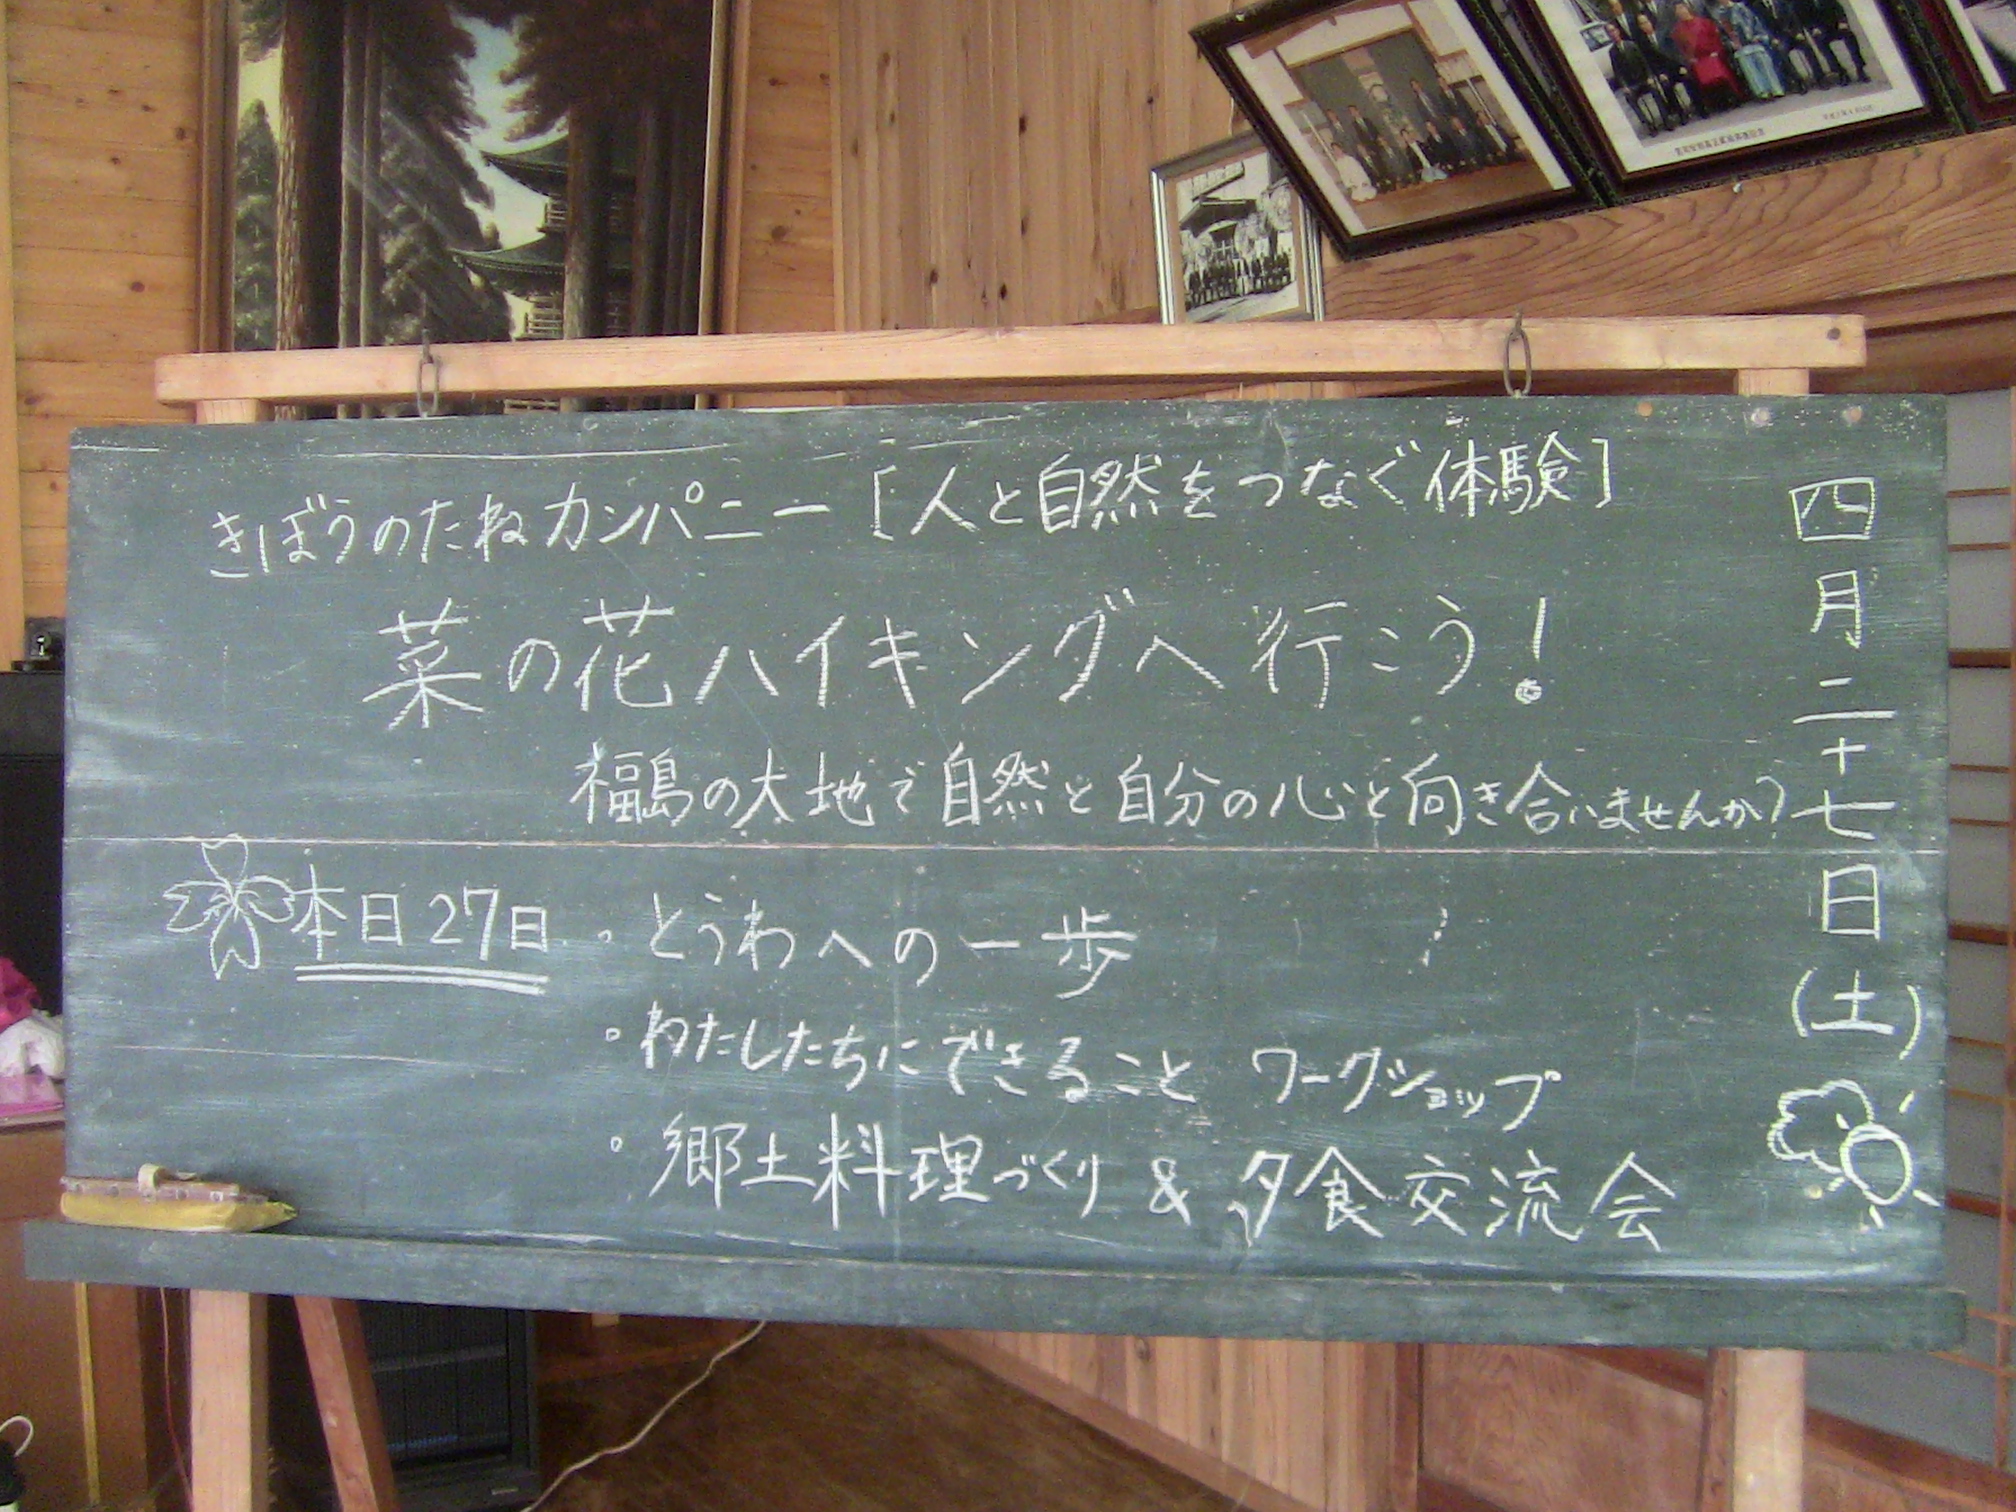 きぼうのたねカンパニー [人と自然をつなぐ体験]
菜の花ハイキングへ行こう!
福島の大地で自然と自分の心と向き合いませんか?
四月二十七日(土)
本日27日 ・とうわへの一歩
・わたしたちにできること ワークショップ
・郷土料理づくり & 夕食交流会